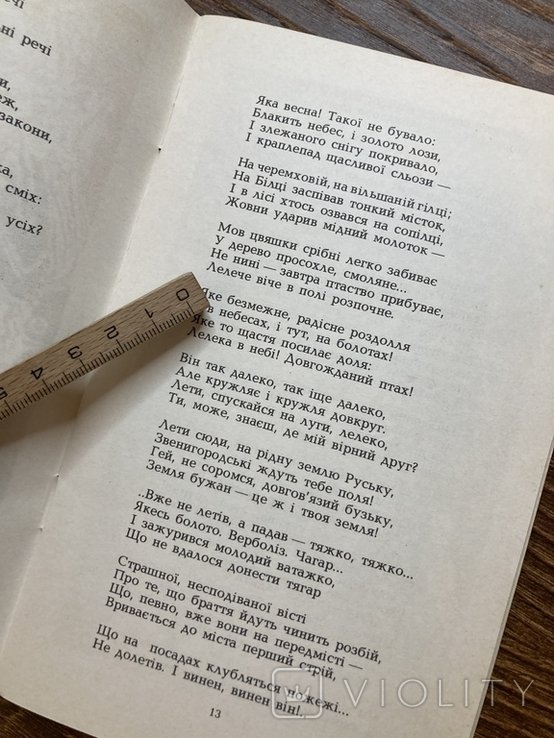 чі
ні речі
и,
еж,
закони,
ка,
сміх:
усіх?
Яка весна! Такої не бувало:
Блакить небес, і золото лози,
І злежаного снігу покривало,
І краплепад щасливої сльози —
На черемховій, на вільшаній гілці;
На Білці заспівав тонкий місток,
І в лісі хтось озвався на сопілці,
Жовни ударив мідний молоток —
Мов цвяшки срібні легко забиває
У дерево просохле, смоляне...
Не нині — завтра птаство прибуває,
Лелече віче в полі розпочне.
Яке безмежне, радісне роздолля
в небесах, і тут, на болотах!
Яке то щастя посилає доля:
Лелека в небі! Довгожданий птах!
Він так далеко, так іще далеко,
Але кружляє і кружля довкруг.
Лети, спускайся на луги, лелеко,
Ти, може, знаєш, де мій вірний друг?
Лети сюди, на рідну землю Руську,
Звенигородські ждуть тебе поля!
Гей, не соромся, довгов'язий бузьку,
Земля бужан — це ж і твоя земля!
..Вже не летів, а падав — тяжко, тяжко...
Якесь болото. Верболіз. Чагар...
І зажурився молодий ватажко,
Що не вдалося донести тягар
Страшної, несподіваної вісті
Про те, що браття йдуть чинить розбій,
Що, певно, вже вони на передмісті —
Вривається до міста перший стрій,
Що на посадах клубляться пожежі...
Не долетів. І винен, винен він!..
13
0 1 2 3 4 5
VIOLITY